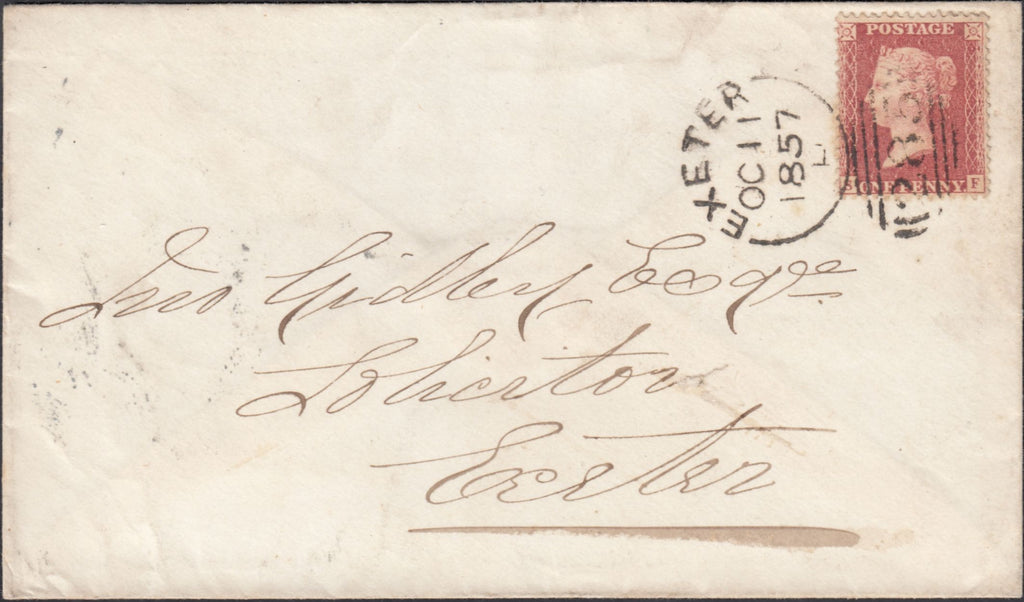 POSTAGE
ONE PENNY
S F
EXETER
OC 11
1857
E
285
Jno Gidley Esqre
Solicitor
Exeter